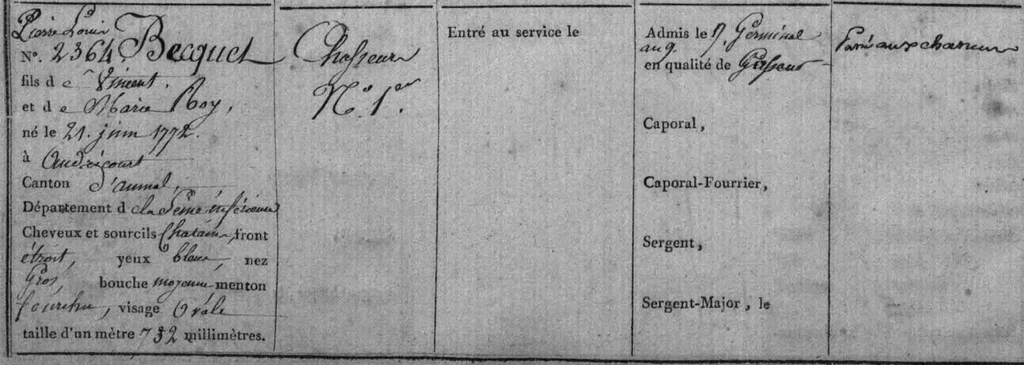 Pierre Louis
N°. 2364 Becquet
fils de Vincent,
et de Marie Roy,
né le 21. juin 1772.
à Audricourt
Canton d'aumal,
Département de la Seine inférieure
Cheveux et sourcils Chatain, front
étroit, yeux bleux, nez
Gros, bouche moyenne menton
fourchu, visage Ovale
taille d'un mètre 732 millimètres.
Chasseur
N°. 1er
Entré au service le
Admis le 9. Germinal
an 9.
en qualité de
Caporal,
Caporal-Fourrier,
Sergent,
Sergent-Major, le
Passé aux chasseurs